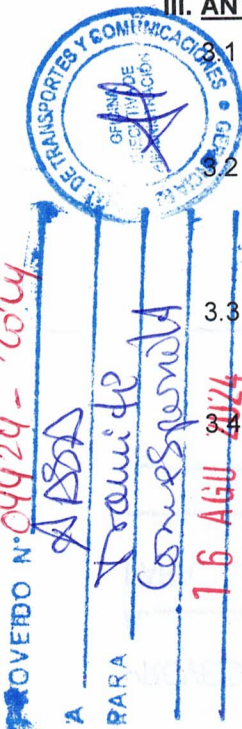 III. AN
3.1
3.2
3.3
3.4
DE TRANSPORTES Y COMUNICACIONES
OFICINA
EJECUTIVA DE
OVEIDO N° 04424 - 2024
A
PARA
Tramite
Correspondiente
16 AGO 2024